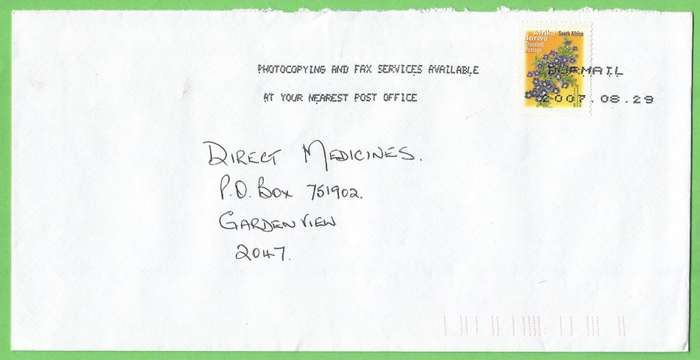 South Africa
Standard
Postage
PHOTOCOPYING AND FAX SERVICES AVAILABLE
AT YOUR NEAREST POST OFFICE
2007.08.29
DIRECT MEDICINES.
P.O. BOX 751902.
GARDENVIEW
2047.